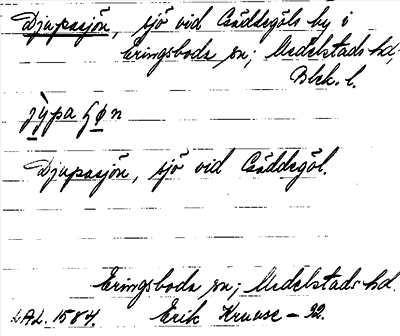 Djupasjön, sjö vid Gäddegöls by i
Eringsboda sn; Medelstads hd,
Blek. l.
jỳpa ʃøn
Djupasjön, sjö vid Gäddegöl.
Eringsboda sn; Medelstads hd.
LAL. 1587. Erik Kruuse – 32.